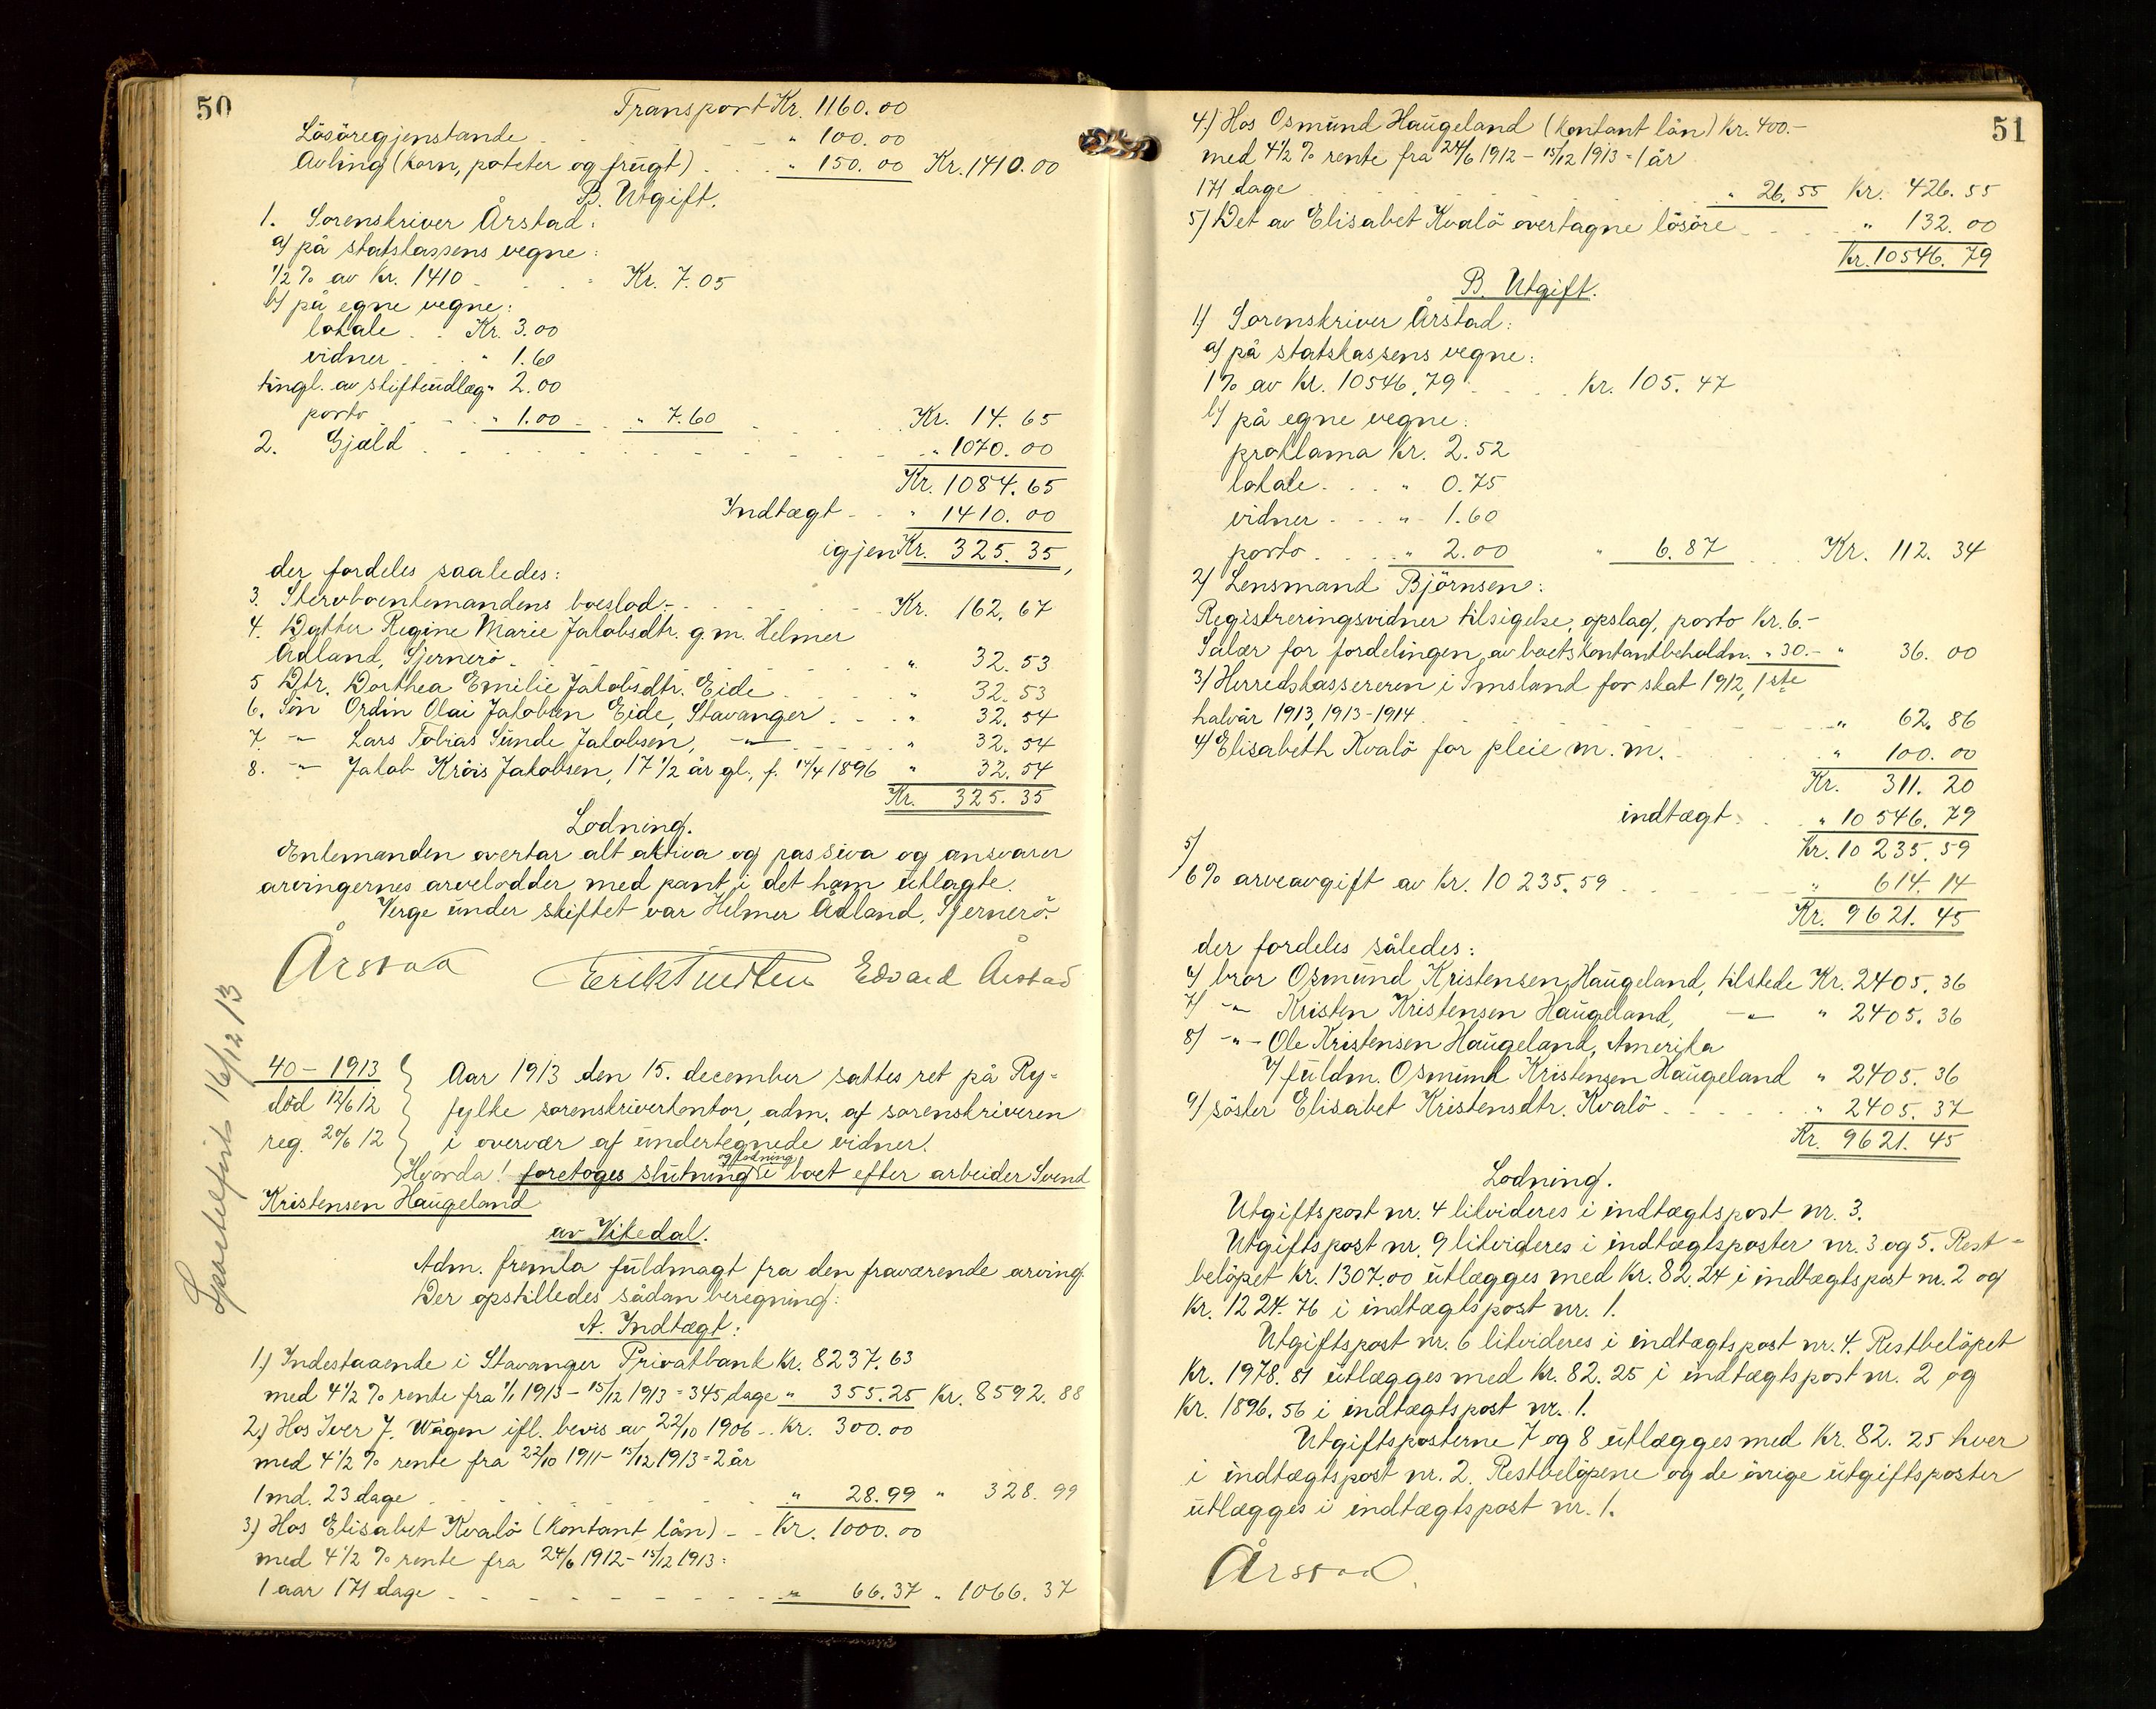 50
Transport Kr. 1160.00
Lösöregjenstande " 100.00
Avling (korn, poteter og frugt) " 150.00 Kr. 1410.00
B. Utgift.
1. Sorenskriver Årstad:
a) på statskassens vegne:
1/2 % av Kr. 1410 Kr. 7.05
b) på egne vegne:
lokale Kr. 3.00
vidner " 1.60
tingl. av skifteudlæg " 2.00
porto " 1.00 " 7.60 Kr. 14.65
2. Gjæld " 1070.00
Kr. 1084.65
Indtægt " 1410.00
igjen Kr. 325.35,
der fordeles saaledes:
3. Stervboenkemandens boeslod Kr. 162.67
4. Datter Regine Marie Jakobsdtr. g.m. Helmer
Adland, Sjernerö " 32.53
5 Dtr. Dorthea Emilie Jakobsdtr. Eide " 32.53
6. Sön Ordin Olai Jakobsen Eide, Stavanger " 32.54
7. -"- Lars Tobias Sunde Jakobsen, -"- " 32.54
8. -"- Jakob Kröis Jakobsen, 17 1/2 år gl., f. 14/4 1896 " 32.54
Kr. 325.35
Lodning.
Enkemanden overtar alt aktiva og passiva og ansvarer
arvingernes arvelodder med pant i det ham utlagte.
Verge under skiftet var Helmer Ådland, Sjernerö.
Årstad Edvard Årstad
16/12 13
40 – 1913 Aar 1913 den 15. december sattes ret på Ry-
död 12/6 12 fylke sorenskriverkontor, adm. af sorenskriveren
reg. 20/6 12 i overvær af undertegnede vidner.
Hvorda! foretoges slutning og lodning i boet efter arbeider Svend
Kristensen Haugeland
av Vikedal.
Adm. fremla fuldmagt fra den fraværende arving.
Der opstilledes sådan beregning:
A. Indtægt:
1.) Indestaaende i Stavanger Privatbank Kr. 8237.63
med 4 1/2 % rente fra 1/1 1913 – 15/12 1913 = 345 dage " 355.25 Kr. 8592.88
2.) Hos Iver J. Wågen ifl. bevis av 22/10 1906 Kr. 300.00
med 4 1/2 % rente fra 22/10 1911 – 15/12 1913 = 2 år
1 md. 23 dage " 28.99 " 328.99
3.) Hos Elisabet Kvalö (Kontant lån) Kr. 1000.00
med 4 1/2 % rente fra 24/6 1912 – 15/12 1913:
1 aar 171 dage " 66.37 " 1066.37
51
4.) Hos Osmund Haugeland (kontant lån) Kr. 400.-
med 4 1/2 % rente fra 24/6 1912 – 15/12 1913 = 1 år
171 dage " 26.55 Kr. 426.55
5) Det av Elisabet Kvalö overtagne lösöre " 132.00
Kr. 10546.79
B. Utgift.
1) Sorenskriver Årstad:
a) på statskassens vegne:
1 % av Kr. 10546.79 Kr. 105.47
b) på egne vegne:
proklama Kr. 2.52
lokale " 0.75
vidner " 1.60
porto " 2.00 " 6.87 Kr. 112.34
2) Lensmand Björnsen:
Registreringsvidner tilsigelse, opslag, porto Kr. 6.-
Salær for fordelingen av boets kontantbeholdn. " 30.- " 36.00
3) Herredskassereren i Imsland for skat 1912, 1ste
halvår 1913, 1913-1914 " 62.86
4) Elisabeth Kvalö for pleie m. m. " 100.00
Kr. 311.20
indtægt " 10546.79
Kr. 10235.59
5)
6 % arveavgift av Kr. 10235.59 " 614.14
Kr. 9621.45
der fordeles således:
6) bror Osmund Kristensen Haugeland, tilstede Kr. 2405.36
7) -"- Kristen Kristensen Haugeland, -"- " 2405.36
8) -"- Ole Kristensen Haugeland, Amerika
v/ fuldm. Osmund Kristensen Haugeland " 2405.36
9) söster Elisabet Kristensdtr. Kvalö " 2405.37
Kr. 9621.45
Lodning.
Utgiftspost nr. 4 likvideres i indtægtspost nr. 3.
Utgiftspost nr. 9 likvideres i indtægtsposter nr. 3 og 5. Rest-
belöpet Kr. 1307.00 utlægges med Kr. 82.24 i indtægtspost nr. 2 og
Kr. 1224.76 i indtægtspost nr. 1.
Utgiftspost nr. 6 likvideres i indtægtspost nr. 4. Restbelöpet
Kr. 1978.81 utlægges med Kr. 82.25 i indtægtspost nr. 2 og
Kr. 1896.56 i indtægtspost nr. 1.
Utgiftsposterne 7 og 8 utlægges med Kr. 82.25 hver
i indtægtspost nr. 2. Restbelöpene og de övrige utgiftsposter
utlægges i indtægtspost nr. 1.
Årstad.